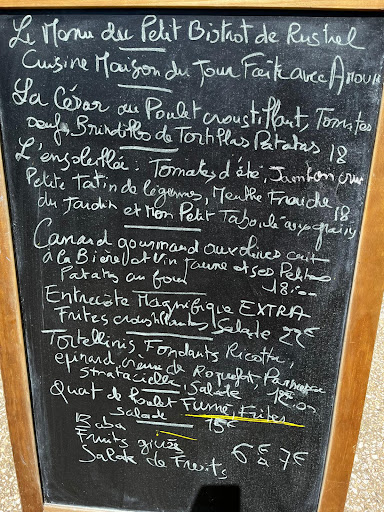 Le Menu du Petit Bistrot de Rustrel
Cuisine Maison du Jour Faite avec Amour
La César au Poulet croustillant, Tomates
oeuf, Brindilles de Tortillas Patatas 18
L'ensoleillée: Tomates d'été, Jambon cru
Petite Tatin de légumes, Menthe Fraiche
du Jardin et Mon Petit Taboulé aux grains 18
Canard gourmand aux olives cuit
à la Bière et Vin Jaune et ses Petites
Patates au four 18:00
Entrecôte Magnifique EXTRA
Frites croustillantes, Salade 22€
Tortellinis Fondants Ricotta,
epinard crème de Roquefort, Parmesan
stratacielle, Salade
Quart de Poulet Fumé, Frites
Salade 15€
Baba
Fruits givrés
Salade de Fruits 6€ à 7€